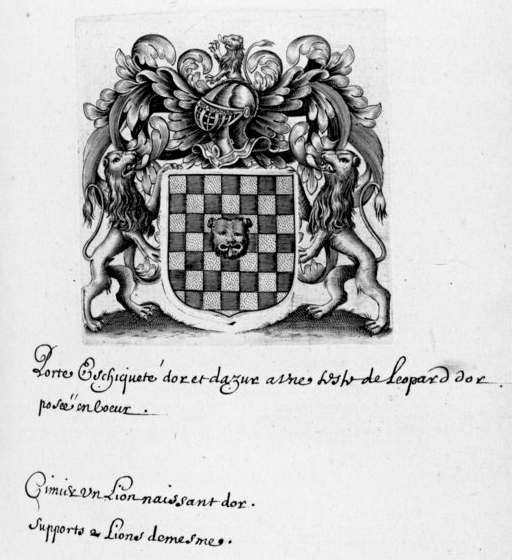 Porte Eschiqueté dor et dazur a vne teste de Leopard dor.
poseé en Coeur.
Cimier vn Lion naissant dor.
supports 2 Lions demesme.